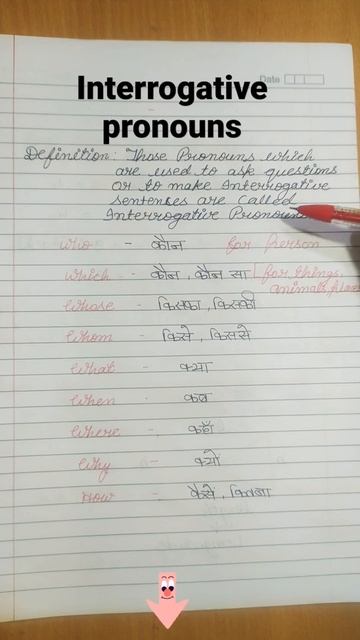 Interrogative
pronouns
Date
Definition: Those Pronouns which
are used to ask questions
or to make Interrogative
sentences are called
Interrogative Pronouns
Who - कौन for Person
Which - कौन, कौन सा for things,
animals,
Whose - किसका, किसकी
Whom - किसे, किससे
What - क्या
When - कब
Where - कहाँ
Why - क्यों
How - कैसे, कितना